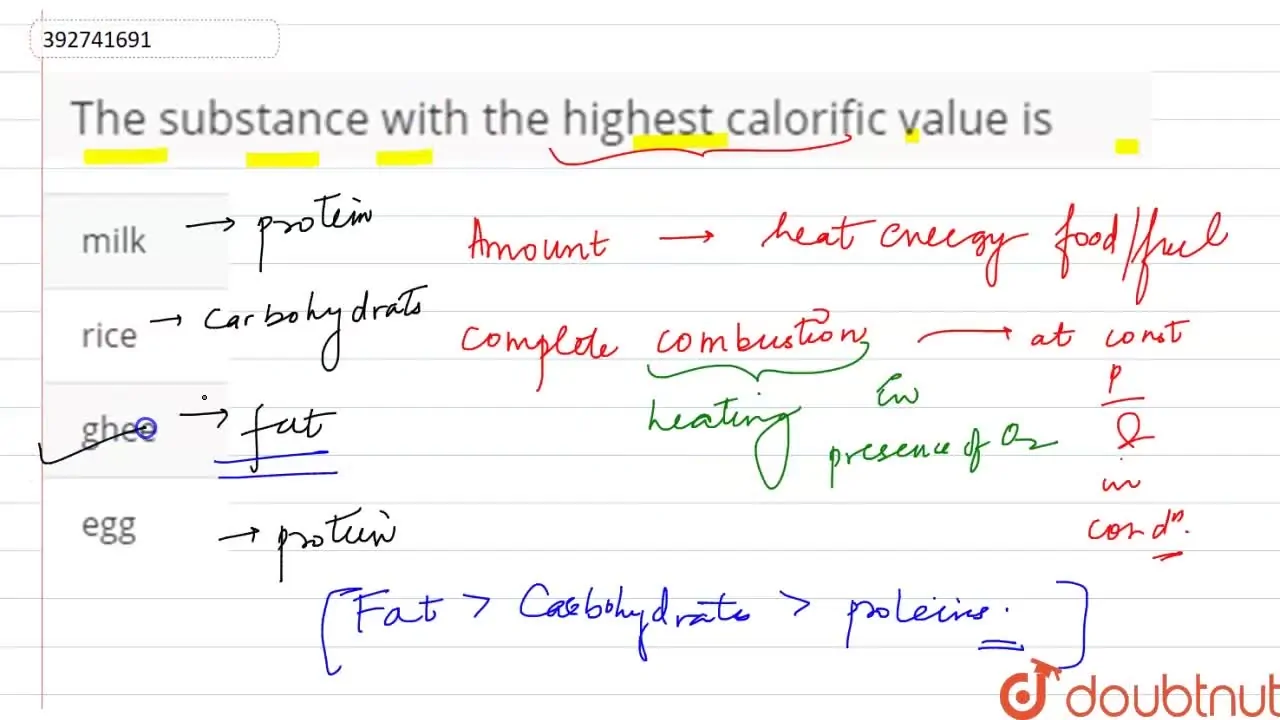 392741691
The substance with the highest calorific value is
milk → protein
rice → carbohydrats
ghee → fat
egg → protein
Amount → heat energy food/fuel
complete combustion → at const
P
heating in
presence of O2
in
condn.
[Fat > Carbohydrats > proteins.]
doubtnut